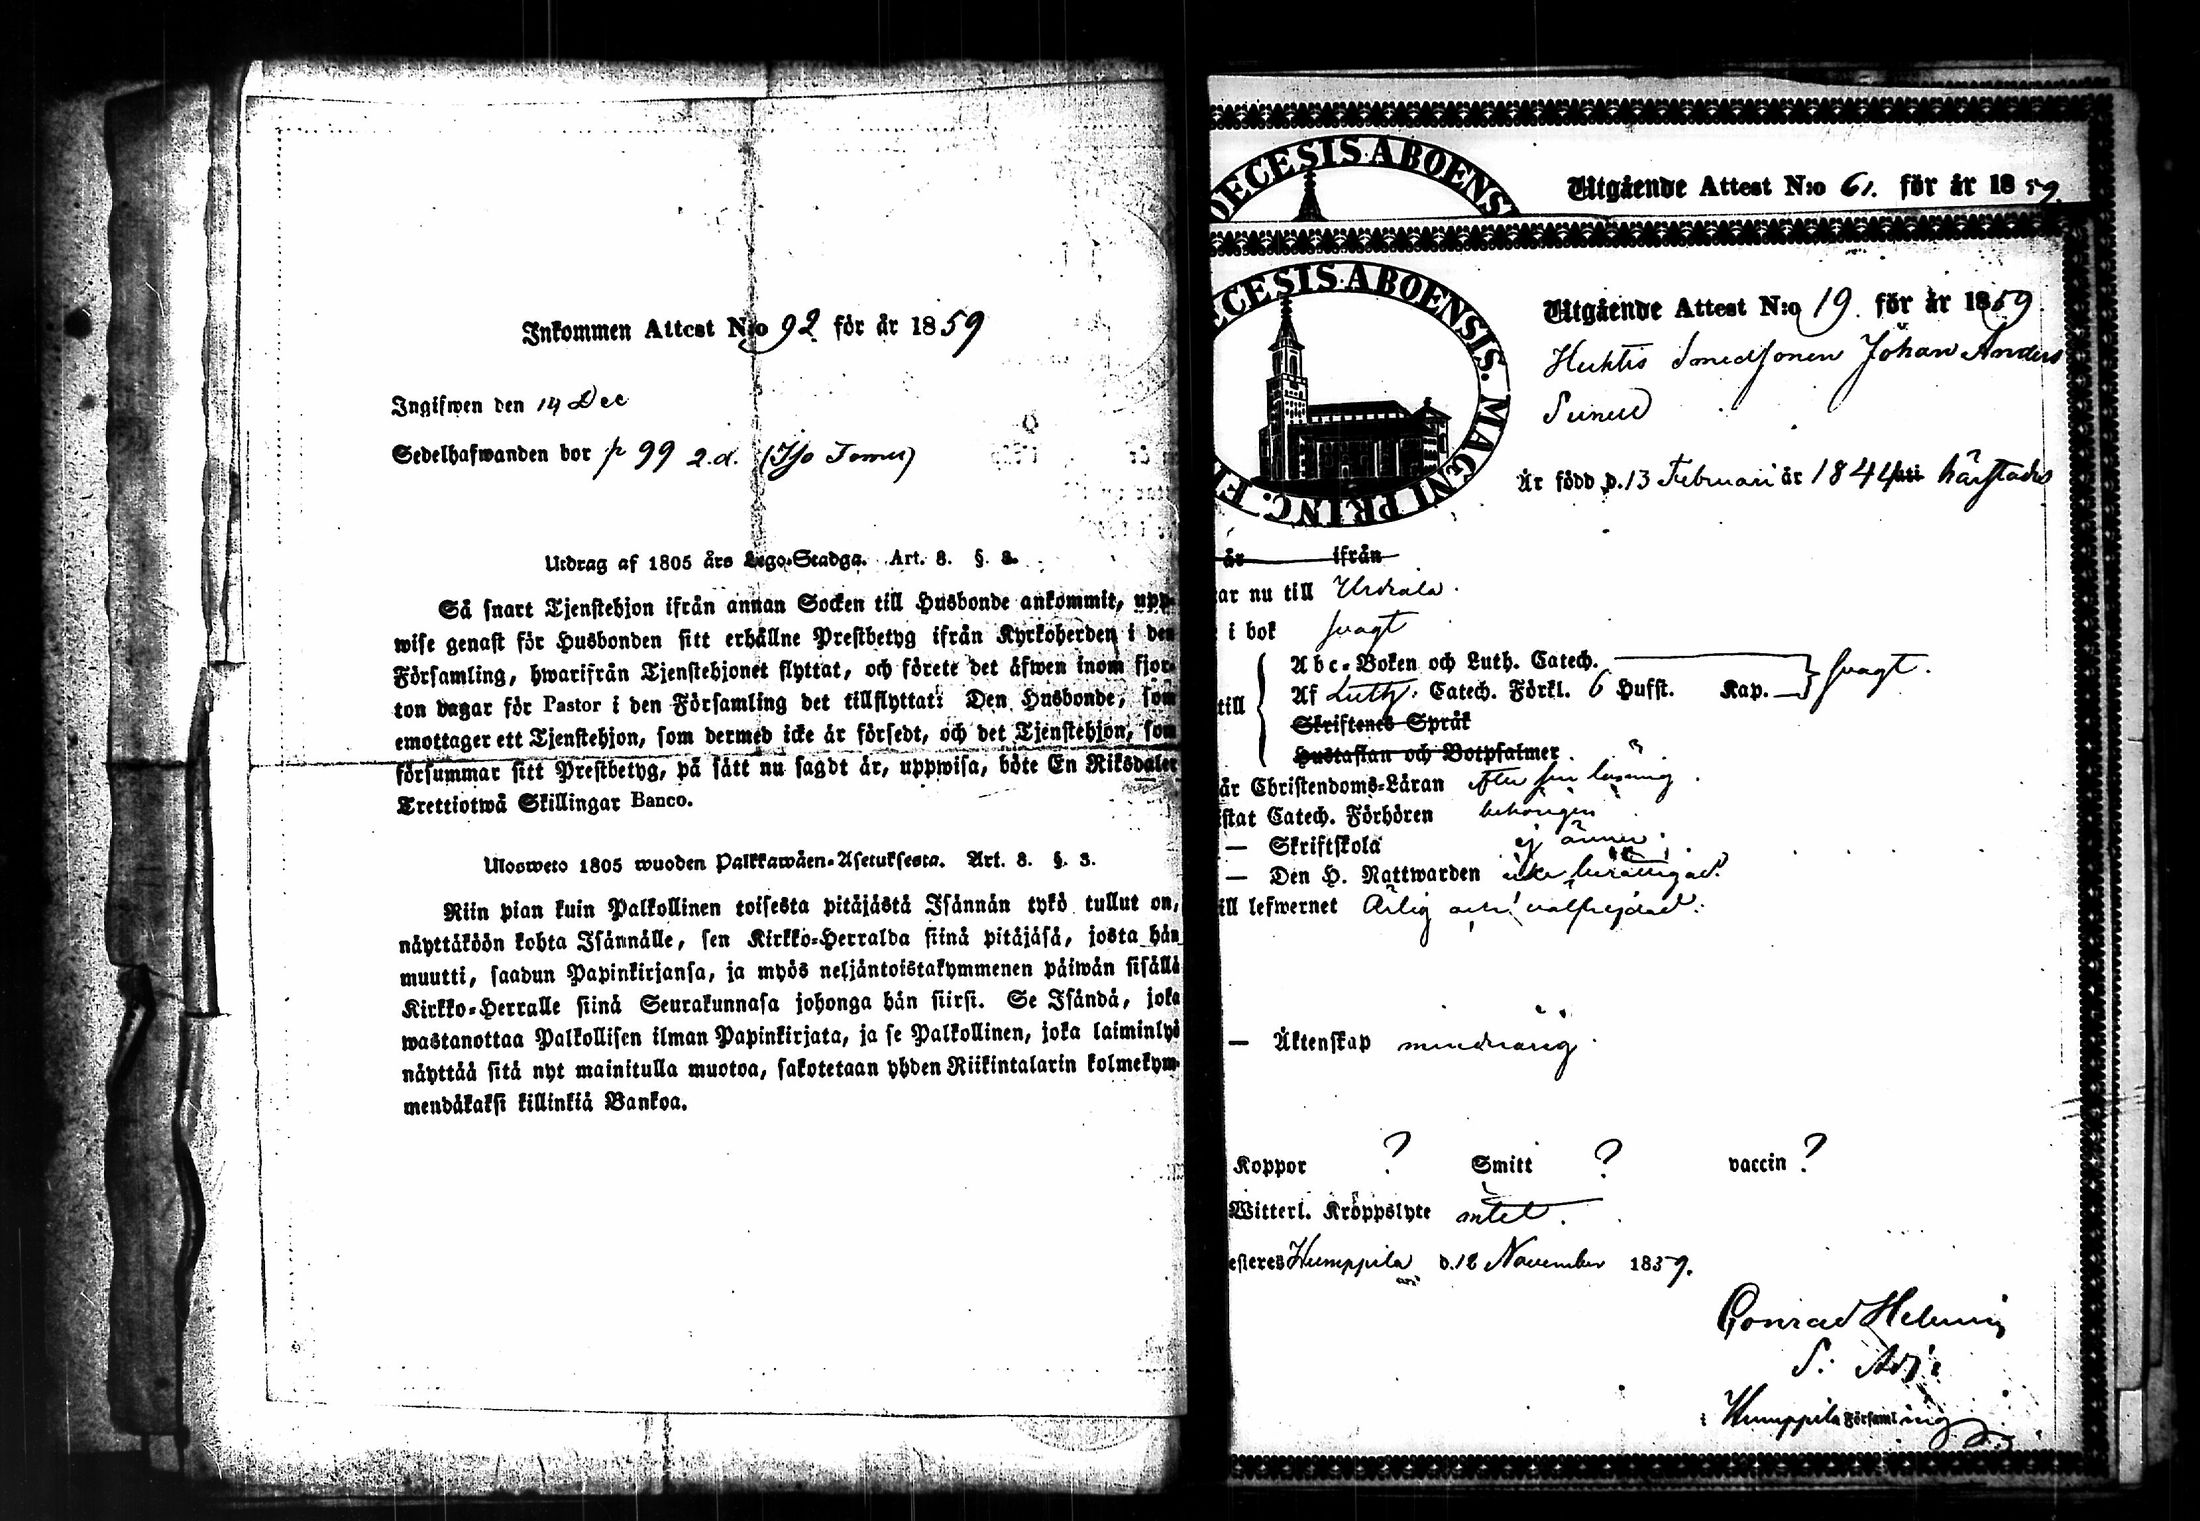 Inkommen Attest N:o 92 för år 1859
Ingifwen den 14 Dec
Sedelhafwanden bor p 99 2.d.
Utdrag af 1805 års Lego-Stadga. Art. 8. §. 3.
Så snart Tjenstehjon ifrån annan Socken till Husbonde ankommit, upp-
wise genast för Husbonden sitt erhållne Prestbetyg ifrån Kyrkoherden i den
Församling, hwarifrån Tjenstehjonet flyttat, och förete det äfwen inom fjor-
ton dagar för Pastor i den Församling det tillflyttat: Den Husbonde, som
emottager ett Tjenstehjon, som dermed icke är försedt, och det Tjenstehjon, som
försummar sitt Prestbetyg, på sätt nu sagdt är, uppwisa, böte En Riksdaler
Trettiotwå Skillingar Banco.
Ulosweto 1805 wuoden Palkkawäen-Asetuksesta. Art. 8. §. 3.
Niin pian kuin Palkollinen toisesta pitäjästä Isännän tykö tullut on,
näyttäköön kohta Isännälle, sen Kirkko-Herralda siinä pitäjäsä, josta hän
muutti, saadun Papinkirjansa, ja myös neljäntoistakymmenen päiwän sisällä
Kirkko-Herralle siinä Seurakunnasa johonga hän siirsi. Se Isändä, joka
wastanottaa Palkollisen ilman Papinkirjata, ja se Palkollinen, joka laiminlyö
näyttää sitä nyt mainitulla muotoa, sakotetaan yhden Riikintalarin kolmekym-
mendäkaksi killinkiä Bankoa.
OECESIS ABOENS
Utgående Attest N:o 61. för år 1859.
ECESIS ABOENSIS. MAGNI PRINC. FI
Utgående Attest N:o 19. för år 1859.
Smedsonen Johan Anders
Är född d. 13 Februari år 1844 uti härstädes
är ifrån
ar nu till Urdiala.
i bok svagt
Abc-Boken och Luth. Catech.
till Af Luth. Catech. Förkl. 6 Hufst. Kap. svagt.
Skriftenes Språk
Hustaflan och Botpsalmer
är Christendoms-Läran efter sin läsning
istat Catech. Förhören behörigen
— Skriftskola ej ännu.
— Den H. Nattwarden icke berättigad.
ill lefwernet Ärlig och välfrejdad.
— Äktenskap minderårig
Koppor ? Smitt ? vaccin ?
Witterl. Kroppslyte intet.
esteres Humppila d. 12 November 1859.
Conrad
S: Adj:
i Humppila Församling